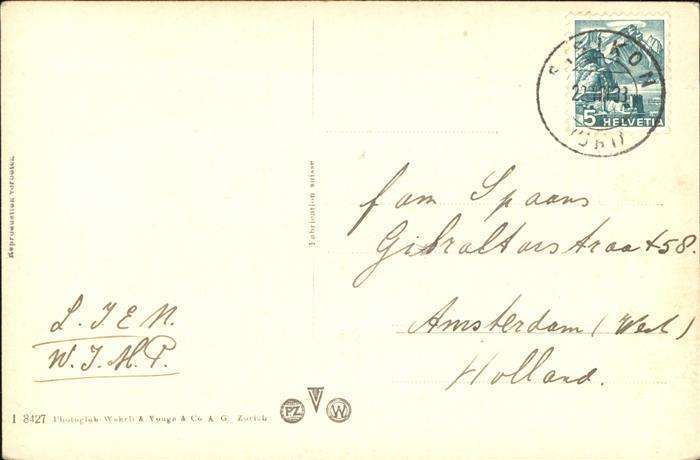 5 HELVETIA
Reproduction interdite
Fabrication suisse
fam Spaans
Gibraltarstraat 58.
Amsterdam (West)
Holland.
L. J E N.
W. J. M. P.
1 8427 Photoglob-Wehrli & Vouga & Co A. G. Zürich
PZ
W